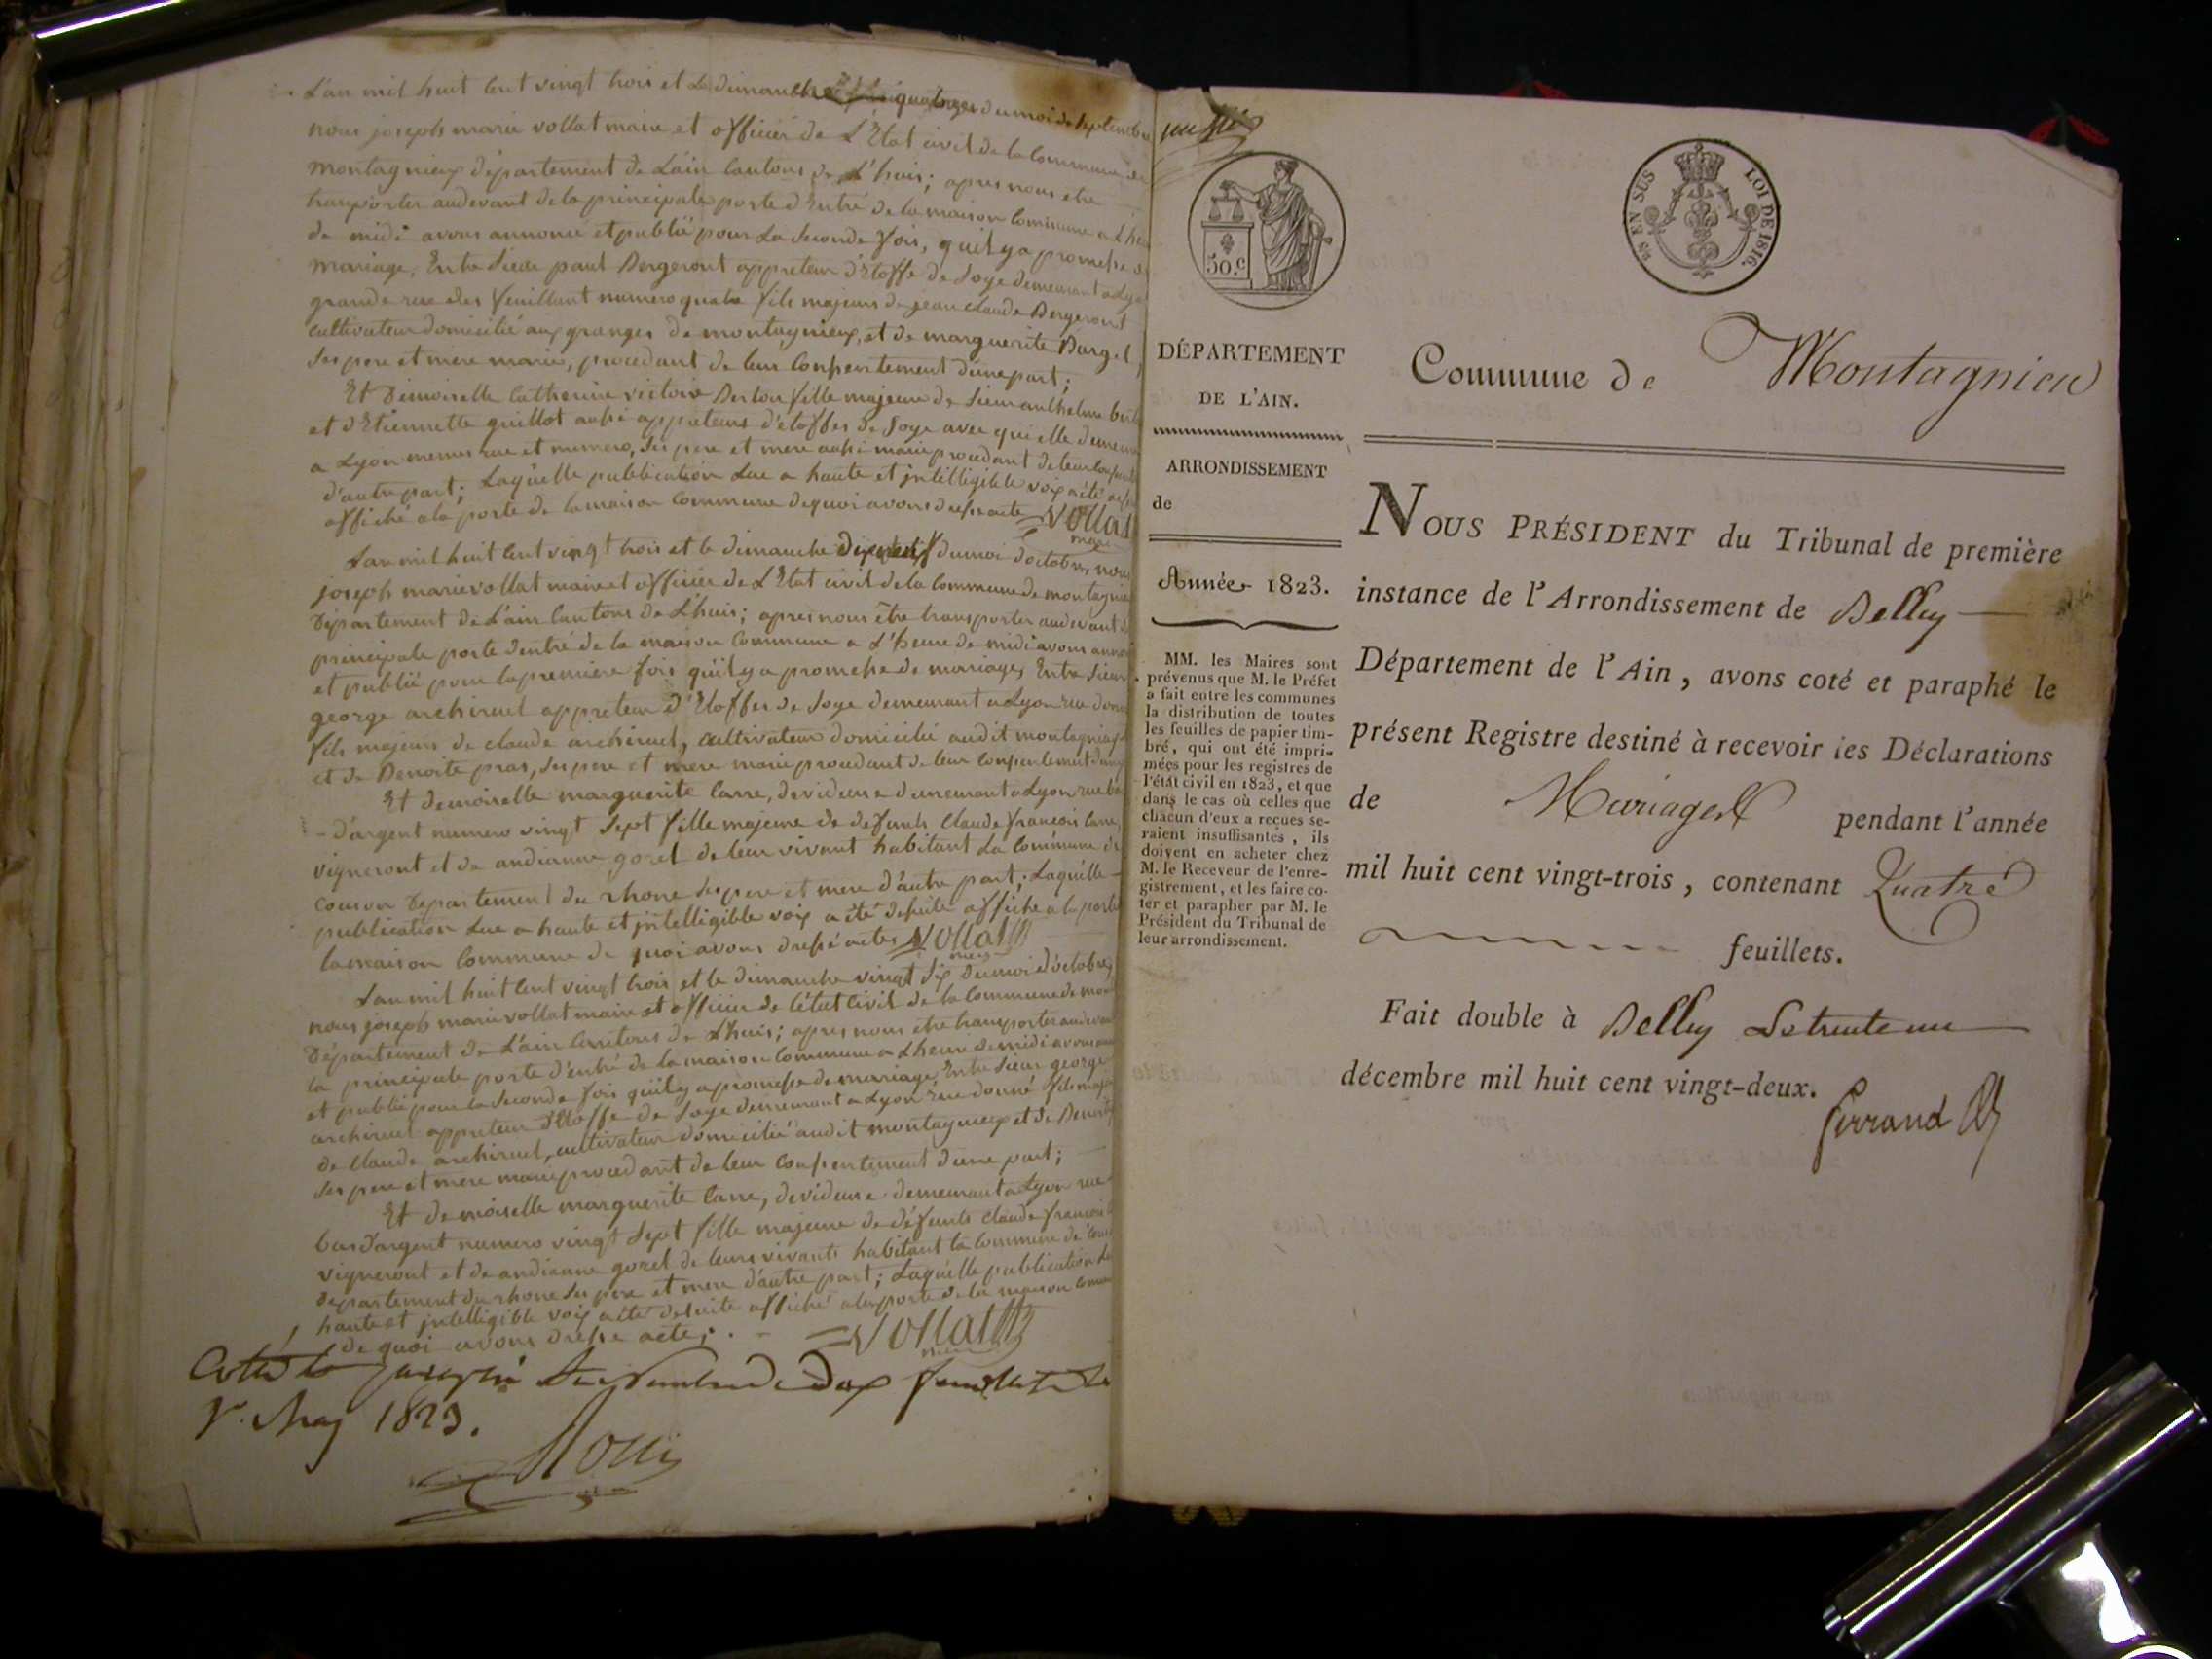 L'an mil huit cent vingt trois et le dimanche quatorze du moi de septembre
nous joseph marie vollat maire et officier de L'Etat civil de la Commune de
montagnieux département de L'ain Cantons de L'huis; apres nous etre
transporter audevant de la principale porte d'Entré de la maison Commune a L'heu
de midi avons annoncé et publié pour La Seconde fois, quil y a promesse de
mariage, Entre Sieur paul Bergeront appreteur d'Etoffe de Soye demeurant a Lyo
grande rue des feuillant numero quatre fils majeurs de jean claude Bergeront
cultivateur domicilié aux granges de montagnieux, et de marguerite
Ses pere et mere mariés, procedant de leur Consentement d'une part;
Et Demoiselle Catherine victoire Bertou fille majeure de Sieur anthelme
et d'Etiennette guillot aussi appreteurs d'étoffes de Soye avec qui elle demeur
a Lyon memes rue et numero, Ses pere et mere aussi marié procedant de leur
d'autre part; Laquelle publication Lue a haute et jntelligible voix a été
affiché a la porte de la maison Commune de quoi avons dressé acte Vollat
maire
L'an mil huit Cent vingt trois et le dimanche dix neuf du moi d'octobre, nous
joseph marie vollat maire et officier de L'Etat civil de la Commune de montagnie
Département de L'ain Cantons de L'huis; apres nous être transporter audevant de
principale porte d'entré de la maison Commune a L'heure de midi avons anno
et publié pour la premiere fois qu'il y a promesse de mariage, Entre Sieur
george archiruel appreteur d'Etoffes de Soye demeurant a Lyon rue
fils majeurs de claude archiruel, cultivateur domicilié audit montagnieux
et de Benoite pras, Ses pere et mere marié procedant de leur Consentement d'une
Et demoiselle marguerite Carre, devideuse demeurant a Lyon rue
d'argent numero vingt Sept fille majeure de defunts Claude francois Carre,
vigneront et de andreanne gorel de leur vivant habitant La Commune de
couson Departement du rhone Ses pere et mere d'autre part; Laquelle
publication Lue a haute et jntelligible voix a été desuite affiché a la porte
la maison Commune de quoi avons dressé actes Vollat
maire
L'an mil huit Cent vingt trois et le dimanche vingt Six du moi d'octobre,
nous joseph marie vollat maire et officier de L'état Civil de la Commune de mon
Département de L'ain Cantons de L'huis; apres nous etre transporter audevant
la principale porte d'entré de la maison Commune a L'heure de midi avons
et publié pour la Seconde fois qu'il y a promesse de mariage, Entre Sieur george
archiruel appreteur d'Etoffe de Soye demeurant a Lyon rue donné fils maje
de claude archiruel, cultivateur domicilié audit montagnieux et de Benoite
Ses pere et mere marié procedant de leur Consentement d'une part;
Et demoiselle marguerite Carre, devideuse demeurant a Lyon rue
bas d'argent numero vingt Sept fille majeure de défunts claude francois
vigneront et de andreanne gorel de leurs vivants habitant la Commune de
departement du rhone Ses pere et mere d'autre part; Laquelle publication
haute et jntelligible voix a été desuite affiché a la porte de la maison Comm
de quoi avons dressé acte; Vollat
maire
1823.
50.c
EN SUS LOI DE 1816.
DÉPARTEMENT
DE L'AIN.
ARRONDISSEMENT
de
Année 1823.
MM. les Maires sont
prévenus que M. le Préfet
a fait entre les communes
la distribution de toutes
les feuilles de papier tim-
bré, qui ont été impri-
mées pour les registres de
l'état civil en 1823, et que
dans le cas où celles que
chacun d'eux a reçues se-
raient insuffisantes, ils
doivent en acheter chez
M. le Receveur de l'enre-
gistrement, et les faire co-
ter et parapher par M. le
Président du Tribunal de
leur arrondissement.
Commune de Montagnieu
NOUS PRÉSIDENT du Tribunal de première
instance de l'Arrondissement de Belley
Département de l'Ain, avons coté et paraphé le
présent Registre destiné à recevoir les Déclarations
de Mariages pendant l'année
mil huit cent vingt-trois, contenant Quatre
feuillets.
Fait double à Belley Le trente un
décembre mil huit cent vingt-deux.
Ferrand